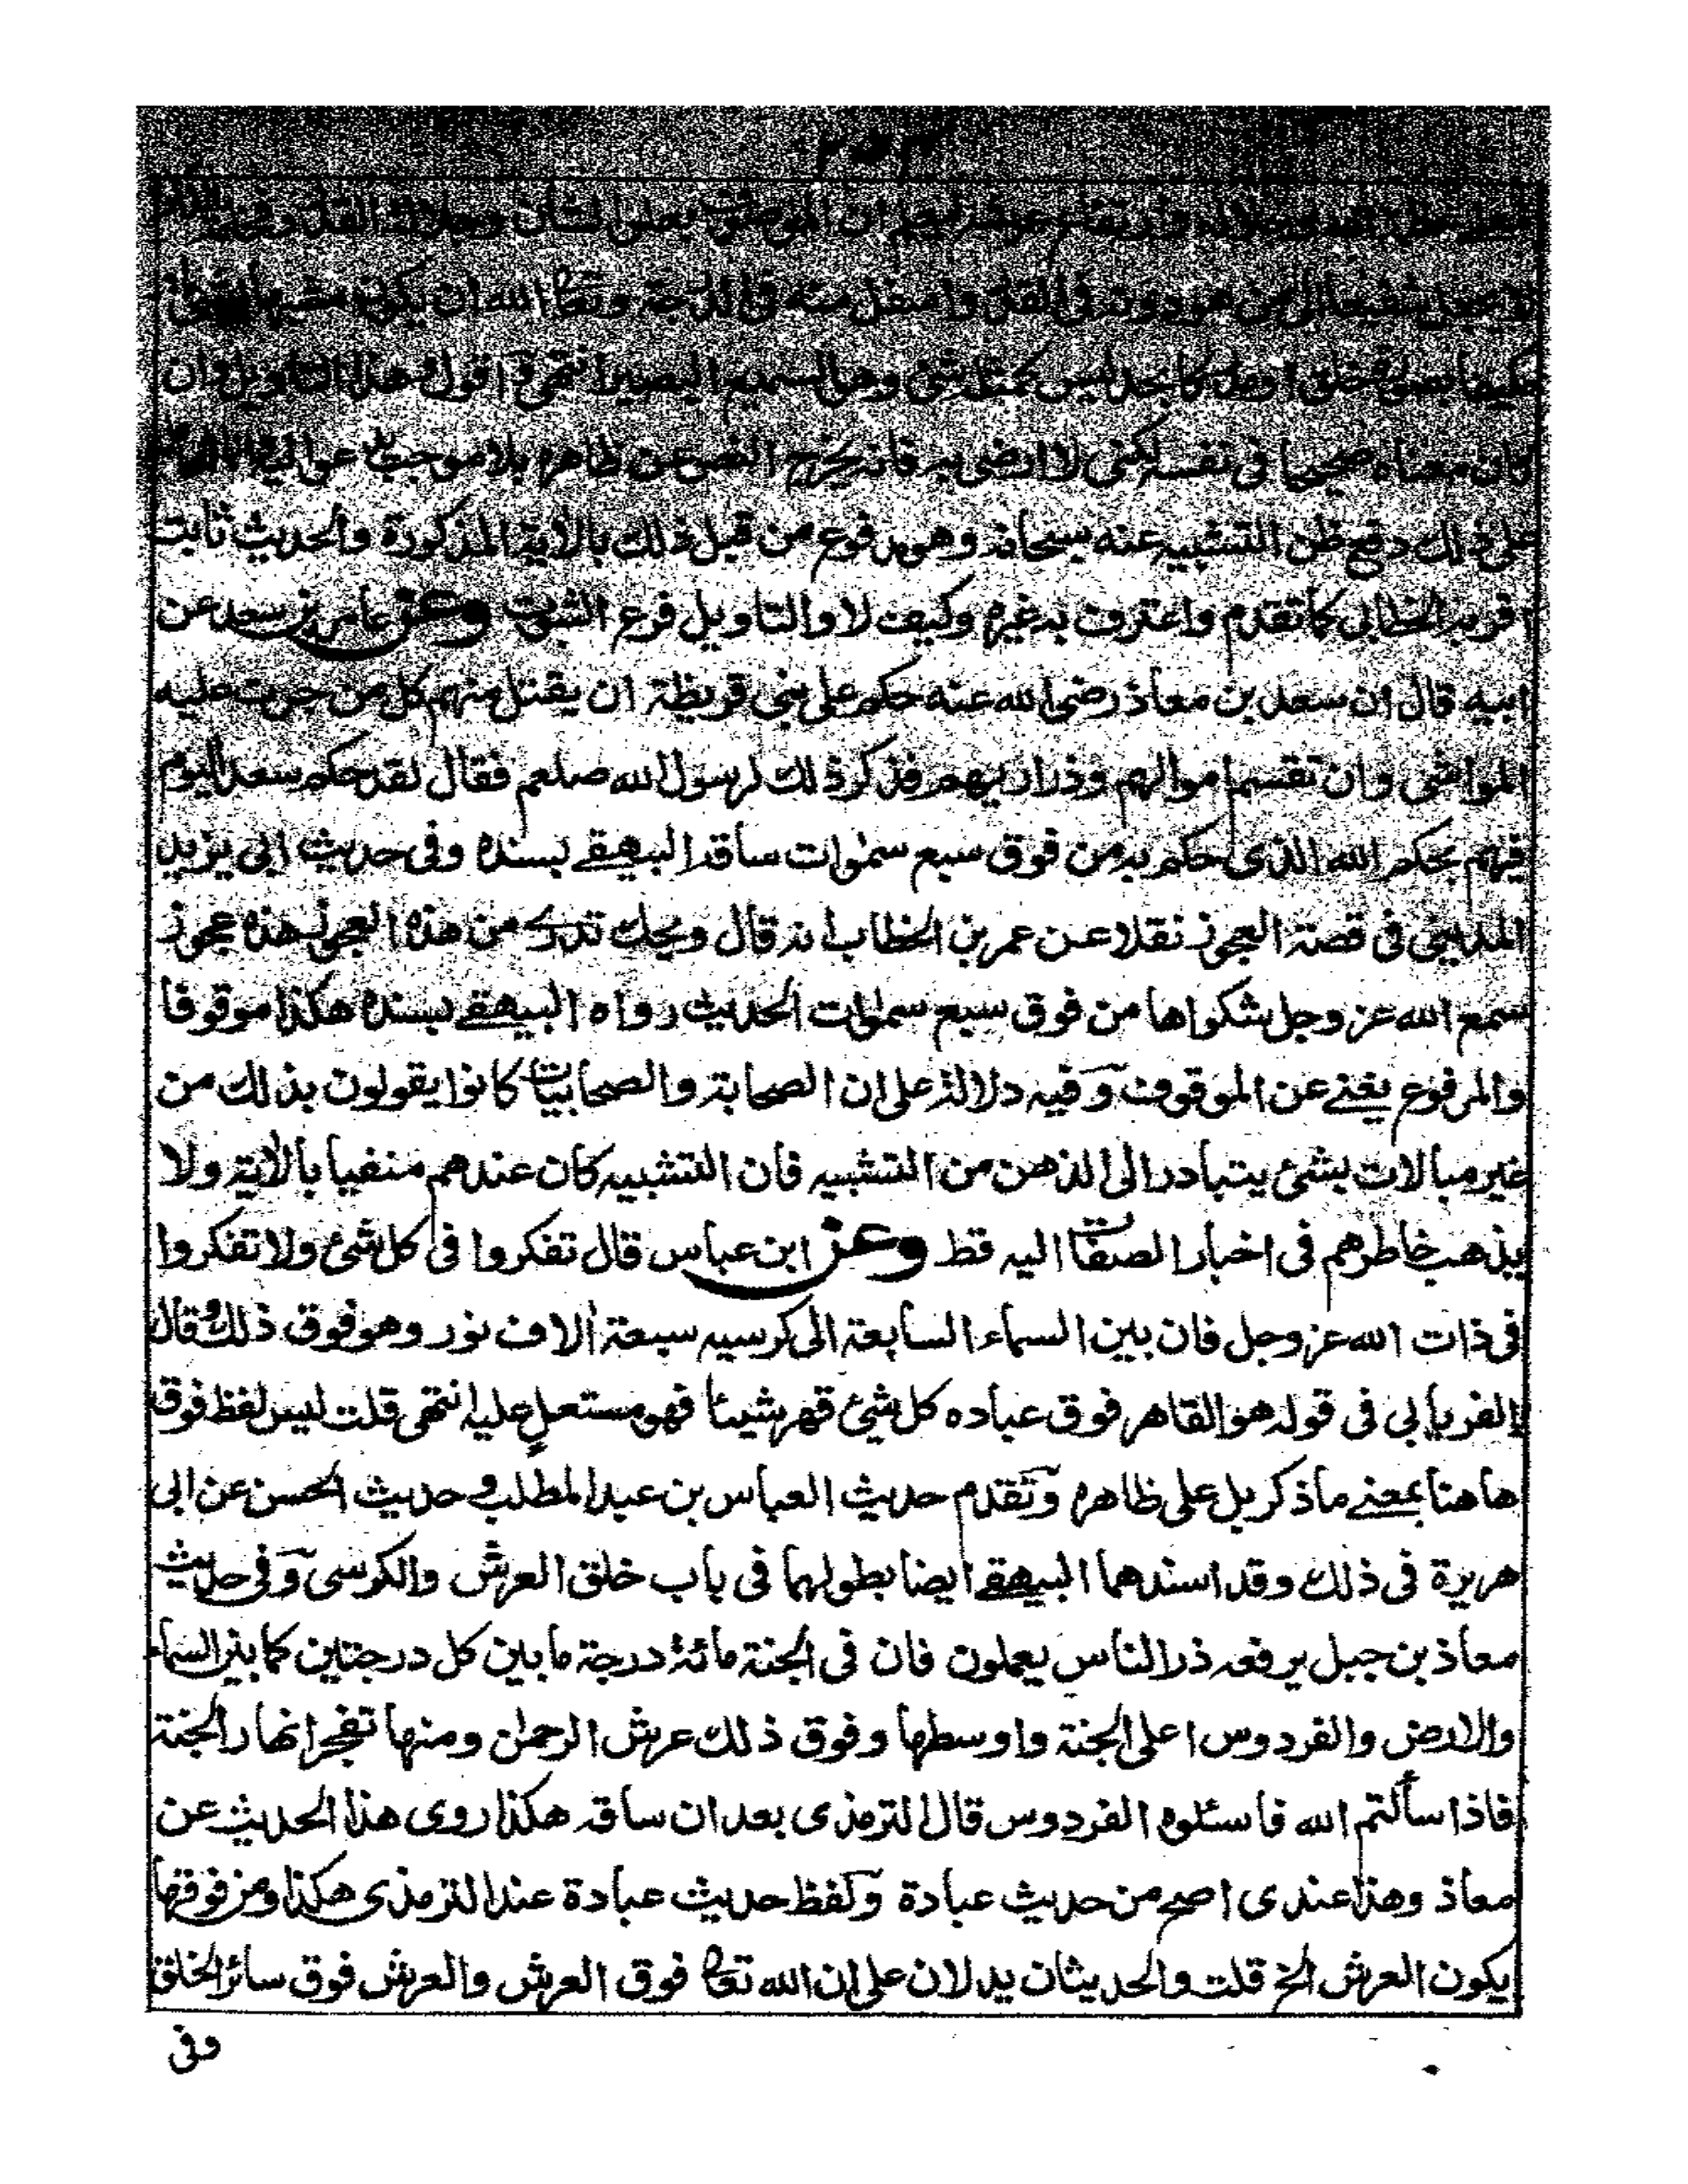 ان الموصوف بعلو الشان وجلالة القدر
لا يجعل شفيعا الى من هو دونه فى القدر واسفل منه فى الدرجة وتعالى الله ان يكون مشبها بشئ
او مكيفا بصورة خلق او مدركا بحد ليس كمثله شئ وهو السميع البصير انتهى اقول وهذا التاويل وان
كان معناه صحيحا فى نفسه لكنى لا ارضى به فانه يخرج النص عن ظاهره بلا موجب
على ذلك دفع ظن التشبيه عنه سبحانه وهو مدفوع من قبل ذلك بالاية المذكورة والحديث ثابت
اقر به الخطابى كما تقدم واعترف به غيره وكيف لا والتاويل فرع الثبوت وعن عامر بن سعد عن
ابيه قال ان سعد بن معاذ رضى الله عنه حكم على بنى قريظة ان يقتل منهم كل من جرت عليه
المواسى وان تقسم اموالهم وذراريهم فذكر ذلك لرسول الله صلعم فقال لقد حكم سعد اليوم
فيهم بحكم الله الذى حكم به من فوق سبع سموات ساقه البيهقے بسنده وفى حديث ابى يزيد
المدينى فى قصة العجوز نقلا عن عمر بن الخطاب انه قال ويحك تدرے من هذه العجوز هذه عجوز
سمع الله عز وجل شكواها من فوق سبع سموات الحديث رواه البيهقے بسنده هكذا موقوفا
والمرفوع يغنے عن الموقوف وفيه دلالة على ان الصحابة والصحابيات كانوا يقولون بذلك من
غير مبالات بشئ يتبادر الى الذهن من التشبيه فان التشبيه كان عندهم منفيا بالاية ولا
يذهب خاطرهم فى اخبار الصفات اليه قط وعن ابن عباس قال تفكروا فى كل شئ ولا تفكروا
فى ذات الله عز وجل فان بين السماء السابعة الى كرسيه سبعة الاف نور وهو فوق ذلك وقال
الفريابى فى قوله هو القاهر فوق عباده كل شئ قهر شيئا فهو مستعل عليه انتهى قلت ليس لفظ فوق
هاهنا بمعنے ما ذكر بل على ظاهره وتقدم حديث العباس بن عبد المطلب وحديث الحسن عن ابى
هريرة فى ذلك وقد اسندهما البيهقے ايضا بطولهما فى باب خلق العرش والكرسى وفى حديث
معاذ بن جبل يرفعه ذر الناس يعملون فان فى الجنة مائة درجة ما بين كل درجتين كما بين السماء
والارض والفردوس اعلى الجنة واوسطها وفوق ذلك عرش الرحمن ومنها تفجر انهار الجنة
فاذا سألتم الله فاسئلوه الفردوس قال الترمذى بعد ان ساقه هكذا روى هذا الحديث عن
معاذ وهذا عندى اصح من حديث عبادة ولفظ حديث عبادة عند الترمذى هكذا ومن فوقها
يكون العرش الخ قلت والحديثان يدلان على ان الله تعالى فوق العرش والعرش فوق سائر الخلق
وفى